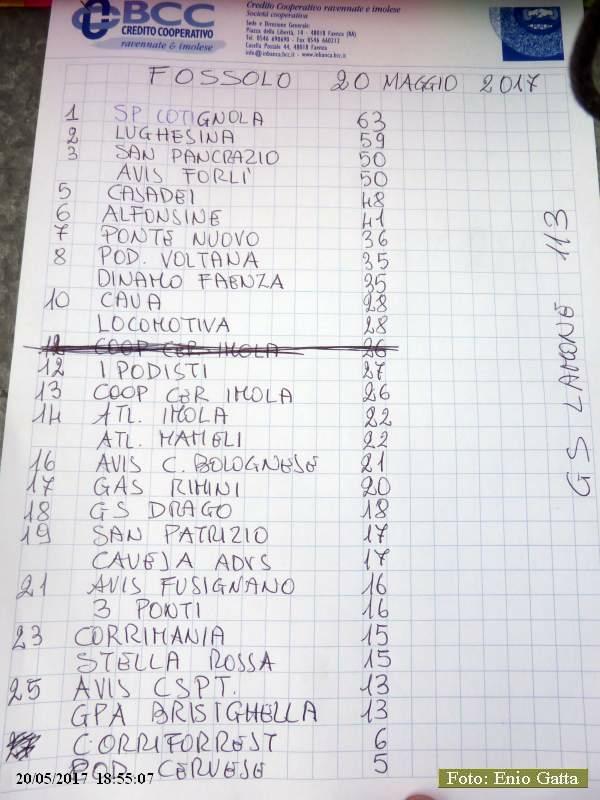 BCC
CREDITO COOPERATIVO
ravennate & imolese
Credito Cooperativo ravennate e imolese
Società cooperativa
Sede e Direzione Generale:
Piazza della Libertà, 14 - 48018 Faenza (RA)
Tel. 0546 690690 - Fax 0546 660313
Casella Postale 44, 48018 Faenza
info@inbanca.bcc.it - www.inbanca.bcc.it
FOSSOLO 20 MAGGIO 2017
1 SP COTIGNOLA 63
2 LUGHESINA 59
3 SAN PANCRAZIO 50
AVIS FORLI' 50
5 CASADEI 48
6 ALFONSINE 41
7 PONTE NUOVO 36
8 POD. VOLTANA 35
DINAMO FAENZA 35
10 CAVA 28
LOCOMOTIVA 28
12 COOP CER IMOLA 26
12 I PODISTI 27
13 COOP CER IMOLA 26
14 ATL. IMOLA 22
ATL. MAMELI 22
16 AVIS C. BOLOGNESE 21
17 GAS RIMINI 20
18 GS DRAGO 18
19 SAN PATRIZIO 17
CAVEJA ADVS 17
21 AVIS FUSIGNANO 16
3 PONTI 16
23 CORRIMANIA 15
STELLA ROSSA 15
25 AVIS CSPT. 13
GPA BRISIGHELLA 13
CORRIFORREST 6
POD CERVESE 5
GS LAMONE 113
20/05/2017 18:55:07
Foto: Enio Gatta